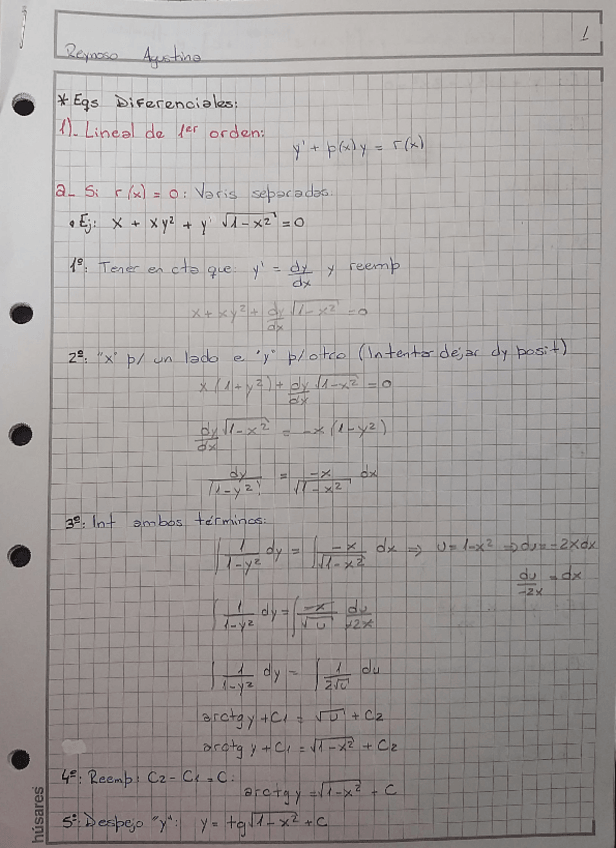 1
Reynoso Agustina
* Eqs Diferenciales:
1)_ Lineal de 1er orden:
y' + p(x)y = r(x)
a_ Si r(x) = 0: Varis separadas.
• Ej: x + xy² + y' √1-x² = 0
1º: Tener en cta que: y' = dy/dx y reemp
x + xy² + dy/dx √1-x² = 0
2º: "x" p/ un lado e "y" p/otro (Intentar dejar dy posit)
x (1+y²) + dy/dx √1-x² = 0
dy/dx √1-x² = -x (1-y²)
dy/(1-y²) = -x/√1-x² dx
3º: Int ambos términos:
∫ 1/1-y² dy = ∫ -x/√1-x² dx ⇒ u = 1-x² ⇒ du = -2x dx
du/-2x = dx
∫ 1/1-y² dy = ∫ -x/√u du/-2x
∫ 1/1-y² dy = ∫ 1/2√u du
arctg y + C1 = √u + C2
arctg y + C1 = √1-x² + C2
4º: Reemp: C2 - C1 = C:
arctg y = √1-x² + C
5º: Despejo "y": y = tg √1-x² + C
húsares